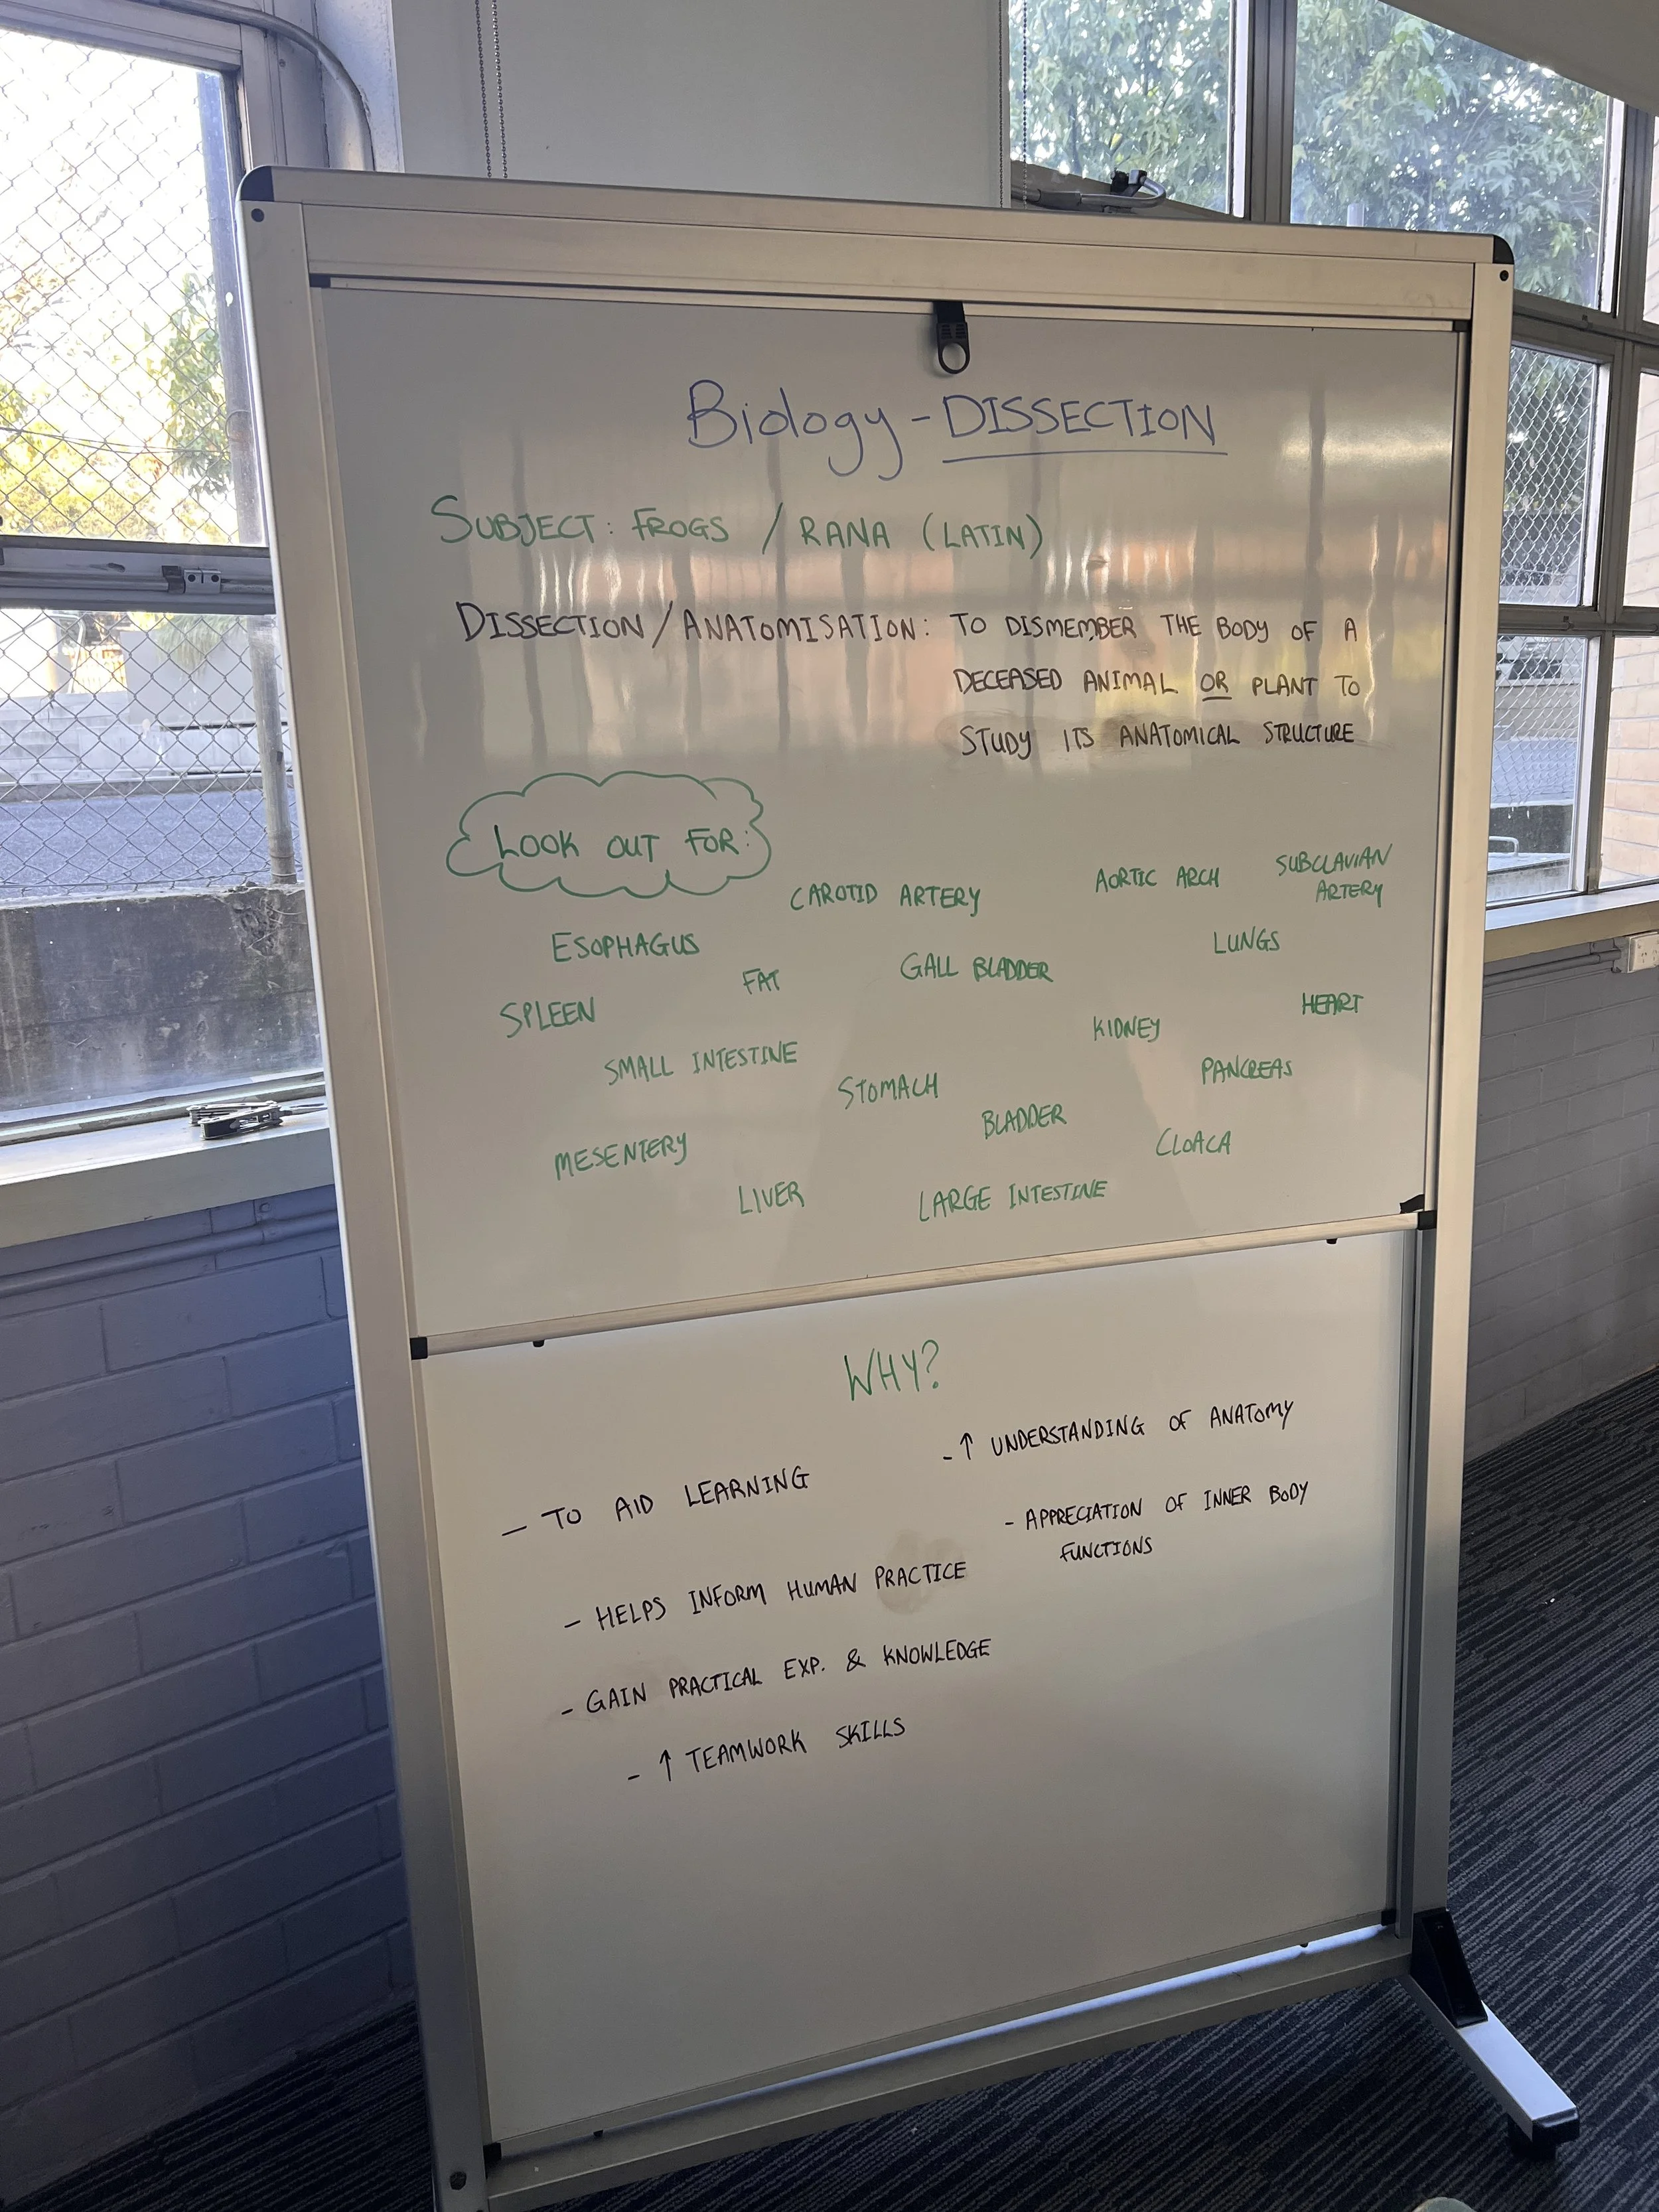 Biology - DISSECTION
SUBJECT: FROGS / RANA (LATIN)
DISSECTION/ANATOMISATION: TO DISMEMBER THE BODY OF A
DECEASED ANIMAL OR PLANT TO
STUDY ITS ANATOMICAL STRUCTURE
LOOK OUT FOR:
CAROTID ARTERY
AORTIC ARCH
SUBCLAVIAN
ARTERY
ESOPHAGUS
FAT
GALL BLADDER
LUNGS
SPLEEN
KIDNEY
HEART
SMALL INTESTINE
STOMACH
PANCREAS
MESENTERY
BLADDER
CLOACA
LIVER
LARGE INTESTINE
WHY?
- TO AID LEARNING
- HELPS INFORM HUMAN PRACTICE
- GAIN PRACTICAL EXP. & KNOWLEDGE
- ↑ TEAMWORK SKILLS
- ↑ UNDERSTANDING OF ANATOMY
- APPRECIATION OF INNER BODY
FUNCTIONS